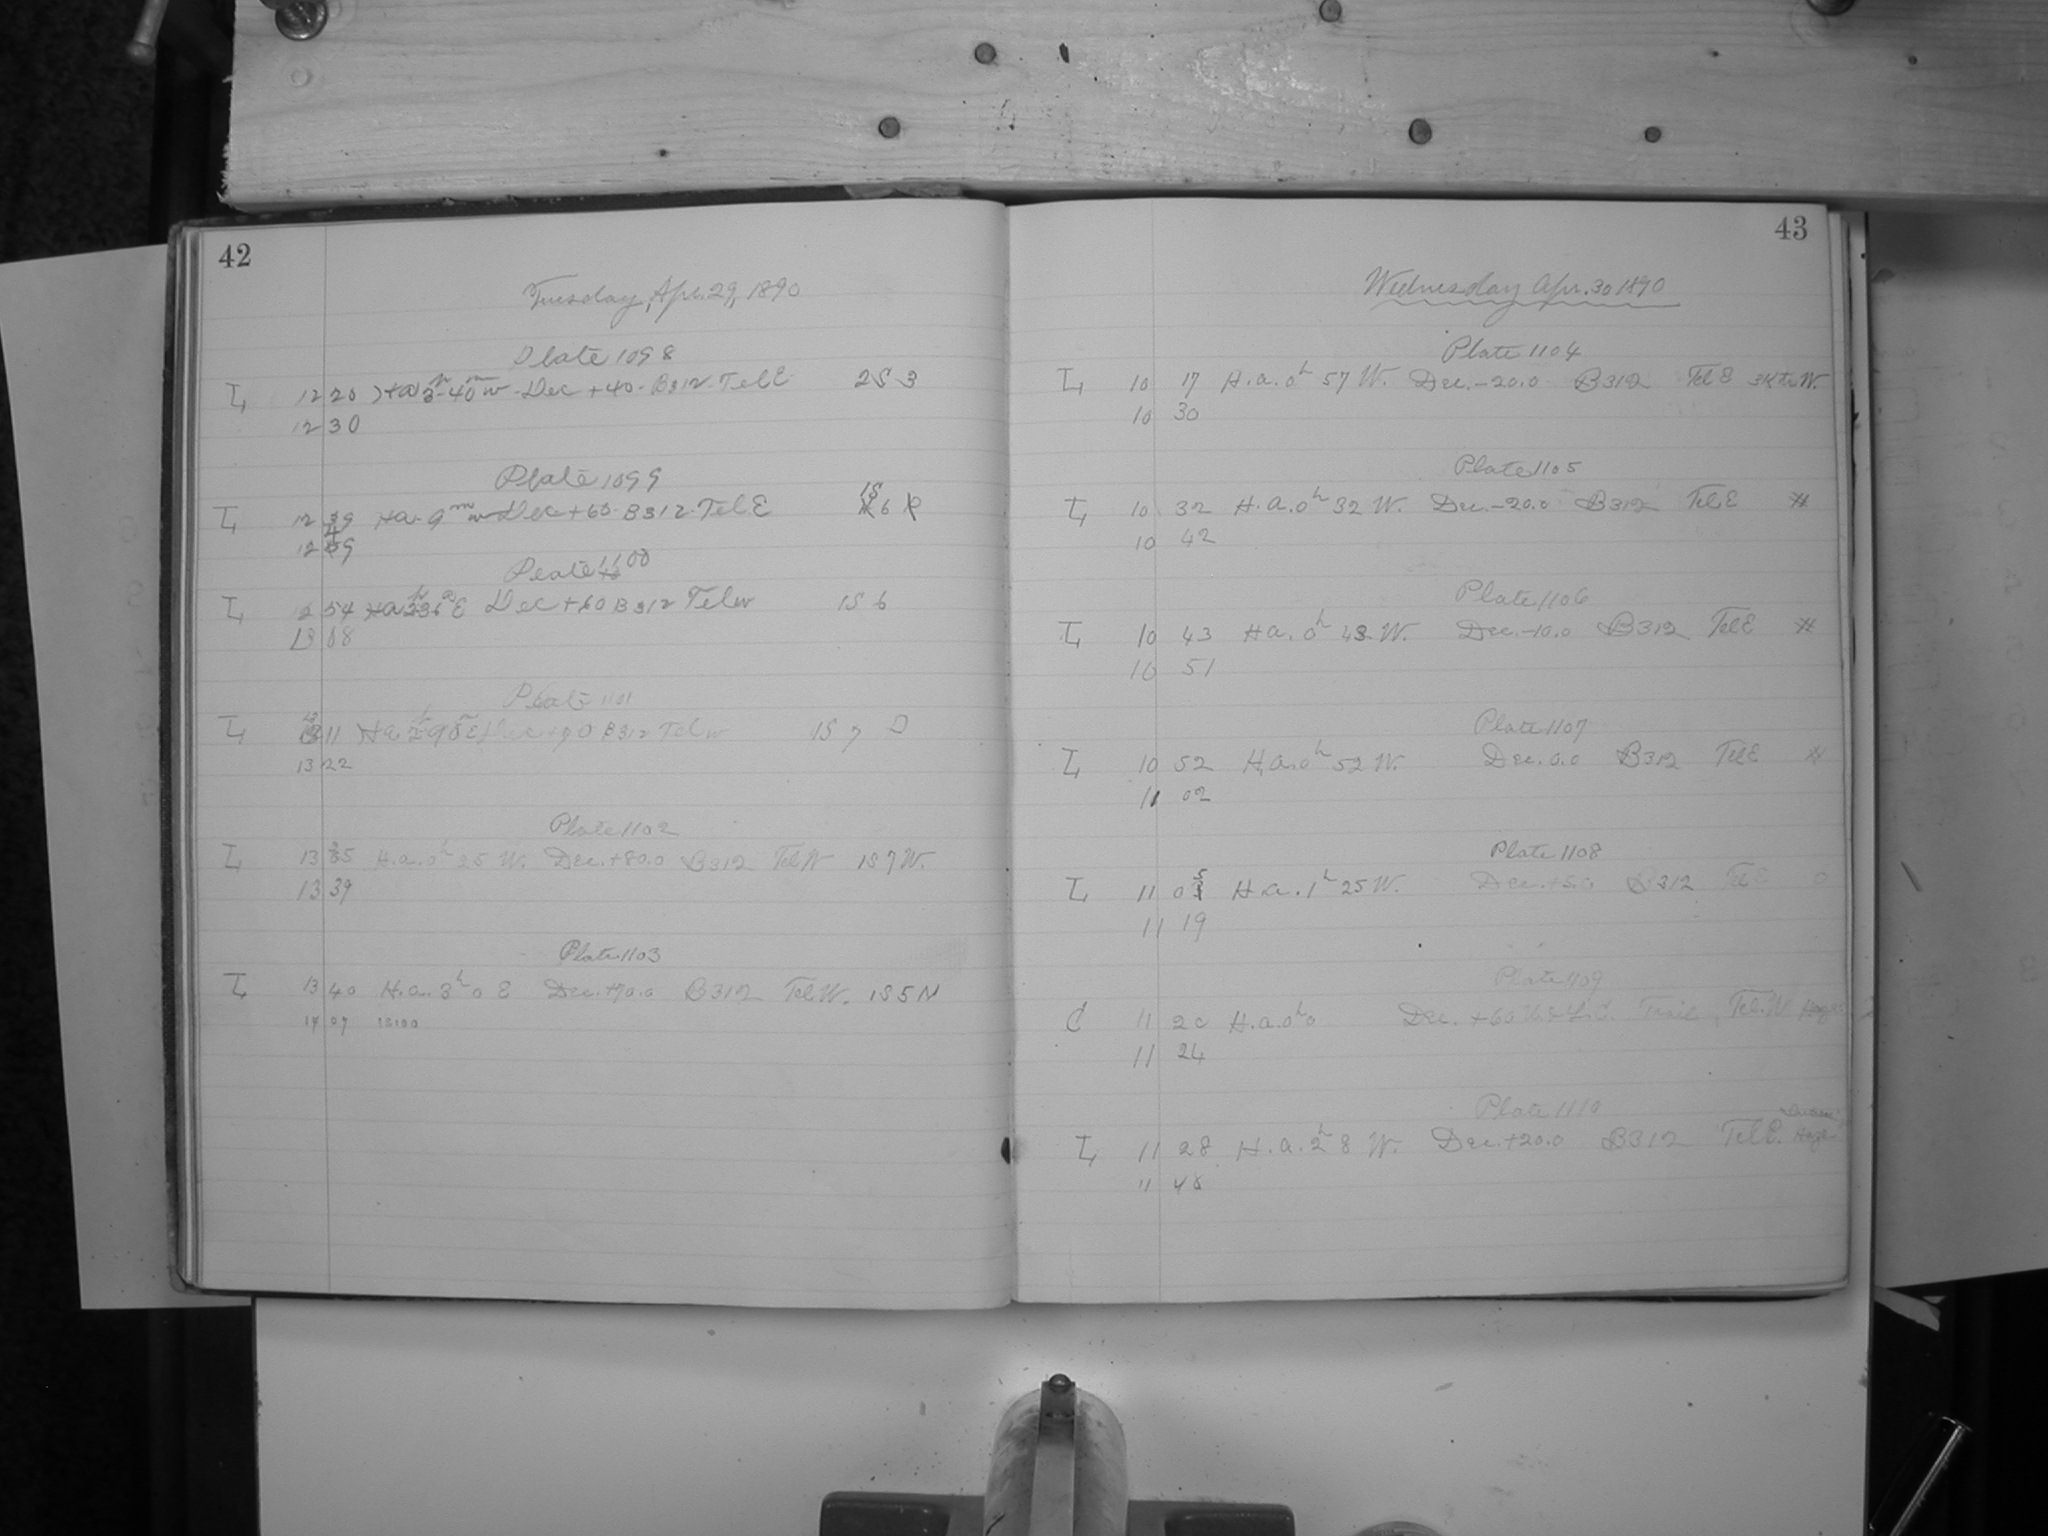 42
Tuesday, Apr. 29, 1890
Plate 1098
L 12 20 Ha 3h 40m W Dec +40 B312 Tel E 2S 3
12 30
Plate 1099
L 12 39 Ha 9m W Dec +60 B312 Tel E 1S 6
12 49
Plate 1100
L 12 54 Ha 2h36m E Dec +60 B312 Tel W 1S 6
13 08
Plate 1101
L 13 11 Ha B312 Tel W 1S 7
13 22
Plate 1102
L 13 35 H.a. 0h 25 W. Dec. +80.0 B312 Tel W 1S 7 W.
13 39
Plate 1103
L 13 40 H.a. 3h 0 E Dec. +70.0 B312 Tel. W. 1S 5 N
14 07
43
Wednesday Apr. 30 1890
Plate 1104
L 10 17 H.a. 0h 57 W. Dec. -20.0 B312 Tel E
10 30
Plate 1105
L 10 32 H.a. 0h 32 W. Dec. -20.0 B312 Tel E "
10 42
Plate 1106
L 10 43 H.a. 0h 43 W. Dec. -10.0 B312 Tel E "
10 51
Plate 1107
L 10 52 H.a. 0h 52 W. Dec. 0.0 B312 Tel E "
11 02
Plate 1108
L 11 05 H.a. 1h 25 W. Dec. +5.0 B312 Tel E
11 19
Plate 1109
C 11 20 H.a. 0h 0 Dec. +60 Trail, Tel. W
11 24
Plate 1110
L 11 28 H.a. 2h 8 W. Dec. +20.0 B312 Tel E.
11 48